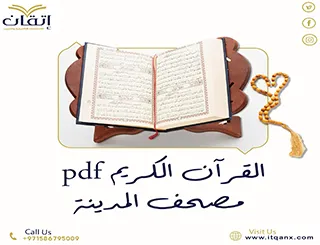 إتقان
القرآن الكريم pdf
مصحف المدينة
Call Us
+971586795009
Visit Us
www.itqanx.com